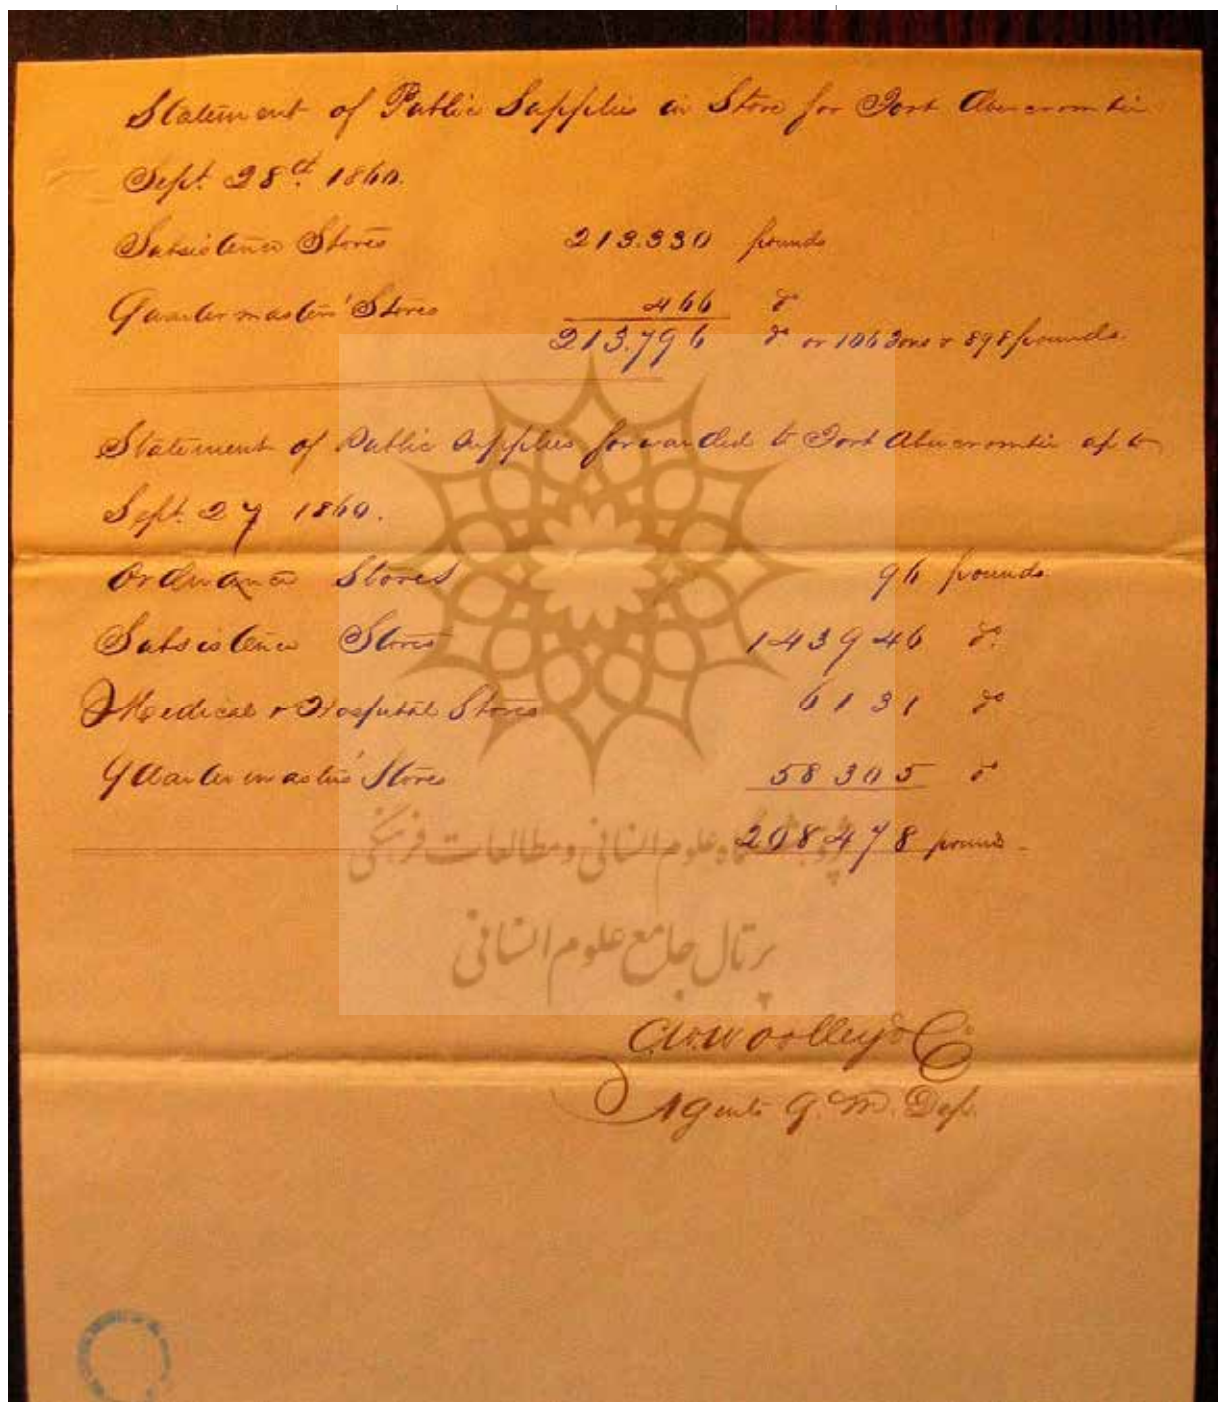 Statement of Public Supplies in Store for Fort Abercrombie
Sept. 28d. 1860.
Subsistence Stores 213.330 pounds
Quartermasters' Stores 466 do
213.796 do or 106 Tons & 898 pounds.
Statement of Public Supplies forwarded to Fort Abercrombie up to
Sept. 27 1860.
Ordnance Stores 96 pounds.
Subsistence Stores 143946 do.
Medical & Hospital Stores 6131 do
Quartermasters' Stores 58305 do
208478 pounds
پژوهشگاه علوم انسانی و مطالعات فرهنگی
پرتال جامع علوم انسانی
Woolley & Co
Agents Q. M. Dep.